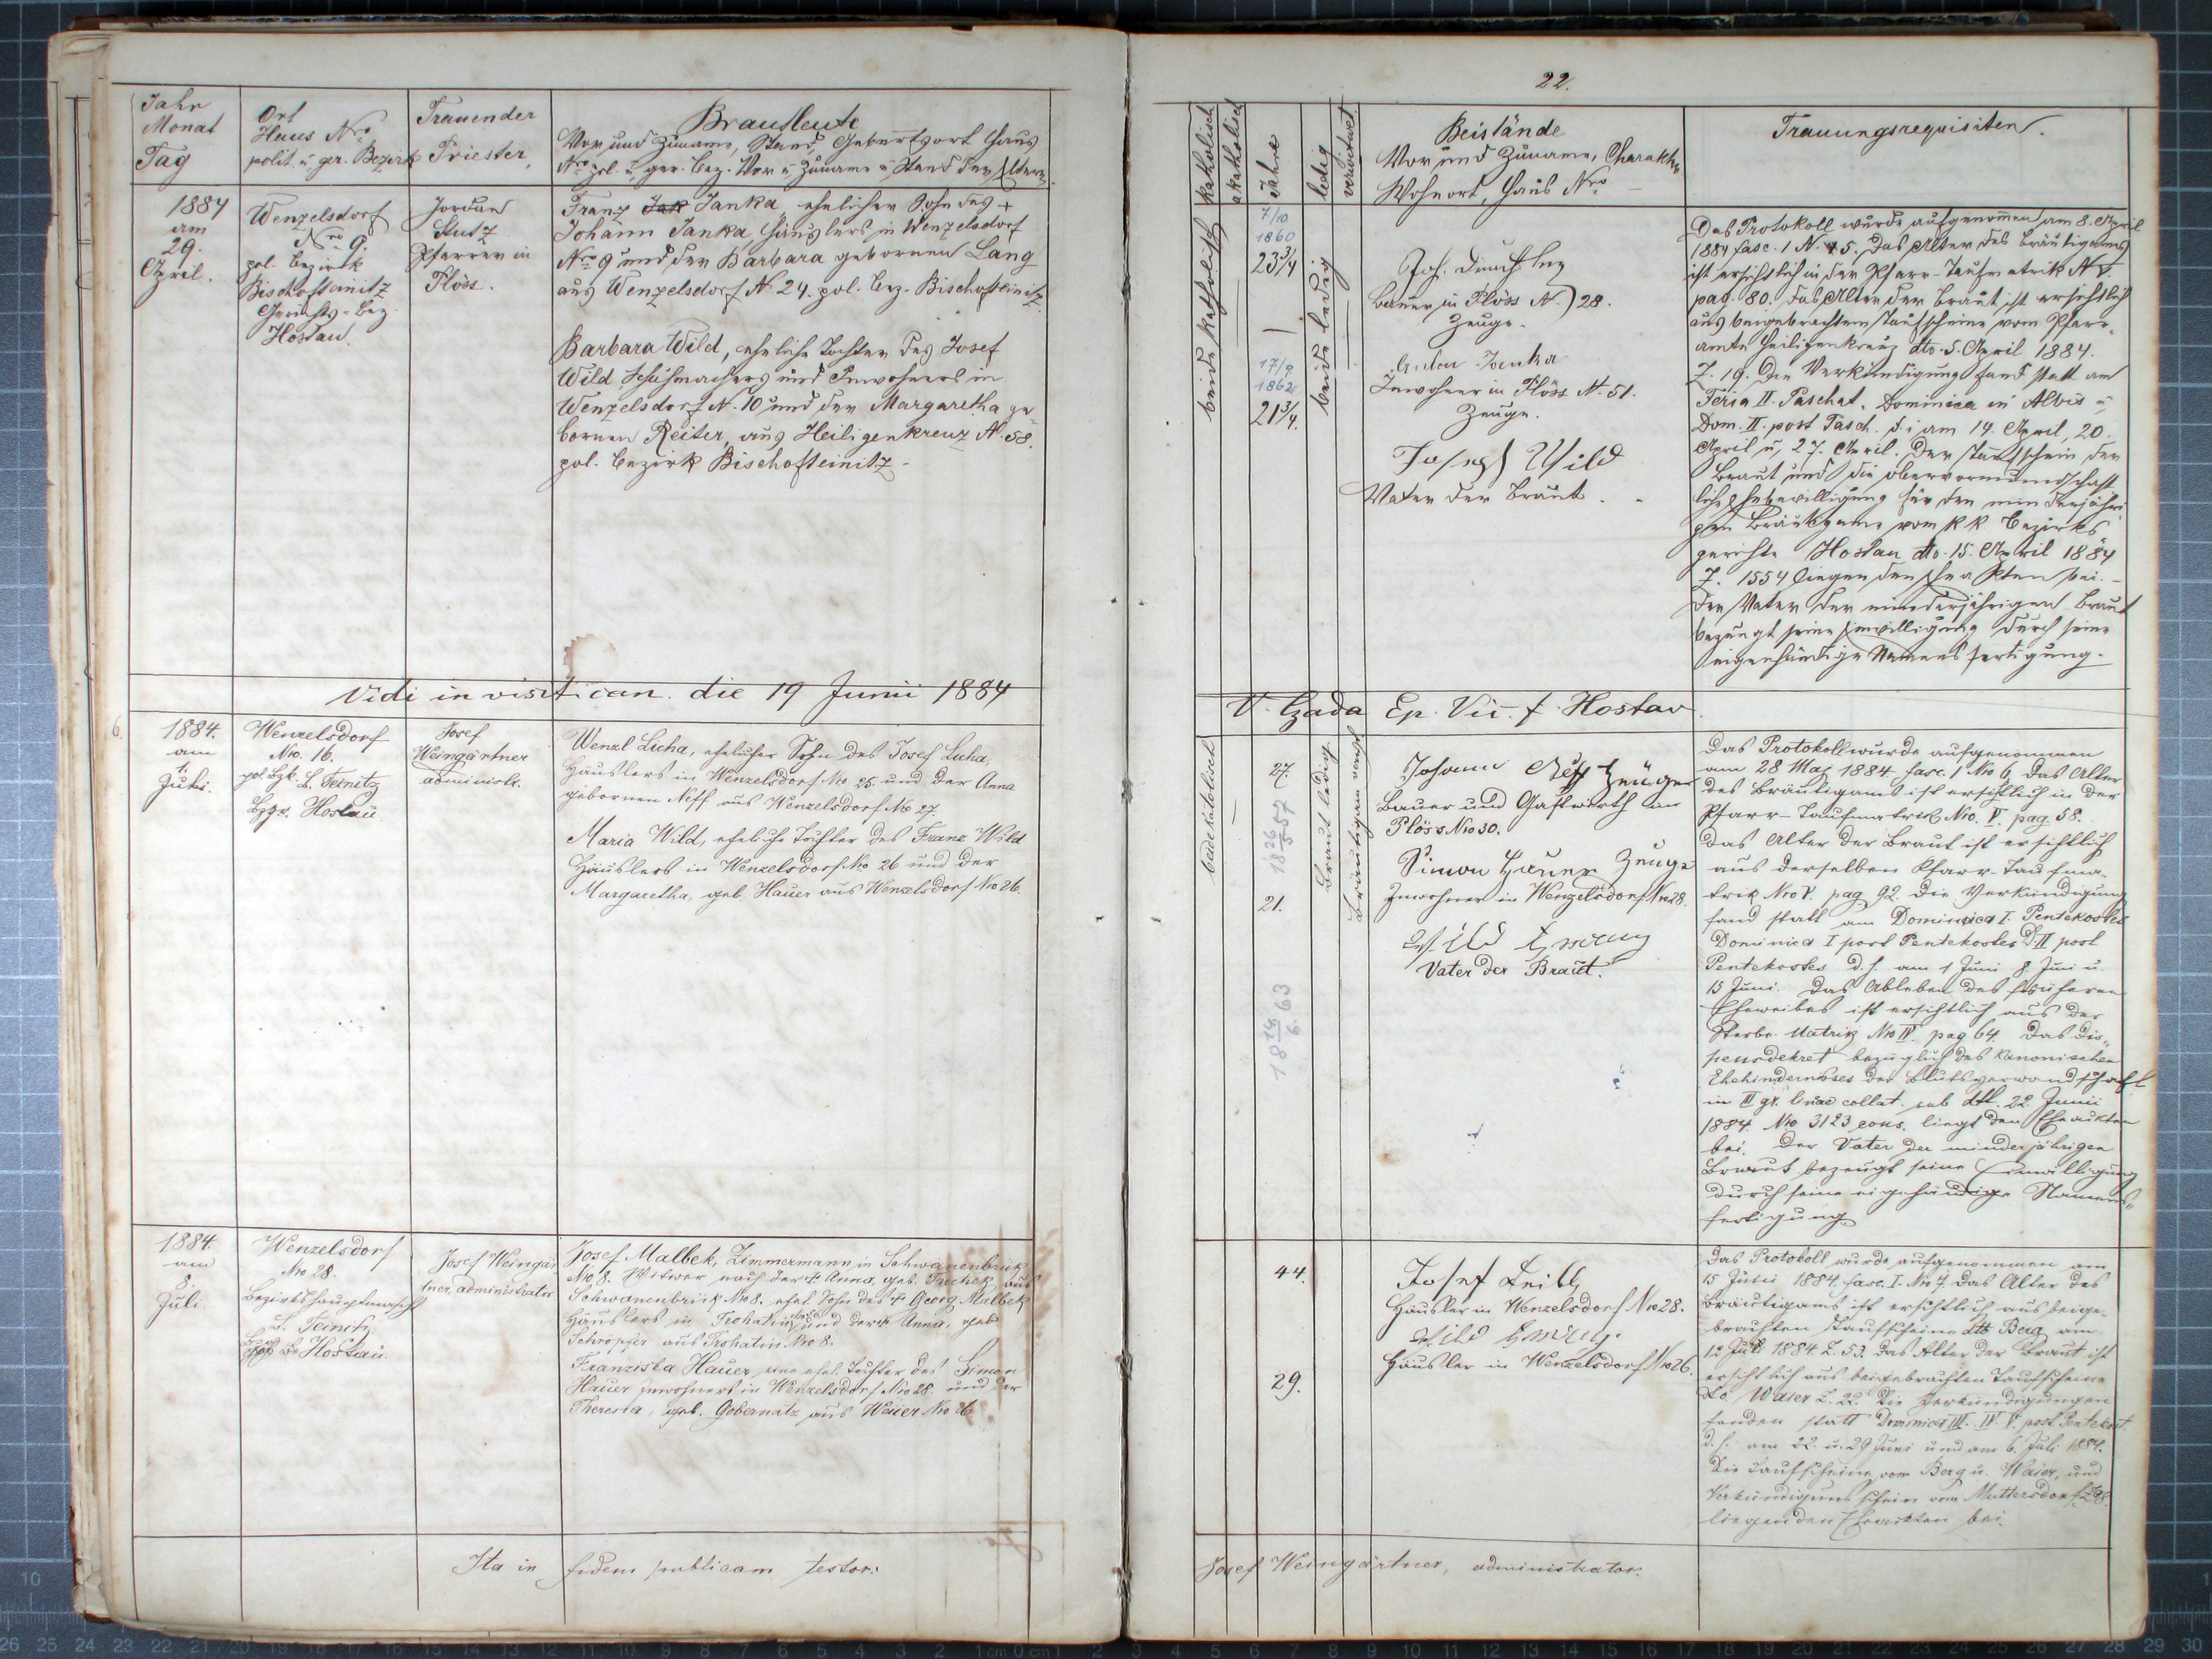 Jahr
Monat
Tag
Ort
Haus Nro
polit. u. ger. Bezirk
Trauender
Priester,
Brautleute
Vor und Zuname, Stand, Geburtsort Haus
Nro pol. u. ger. Bez. Vor u. Zuname u. Stand der Eltern.
1884
am
29.
April.
Wenzelsdorf
Nro 9.
pol. Bezirk
Bischofteinitz
Gerichts-Bez.
Hostau.
Jordan
Stutz
Pfarrer in
Plöss.
Franz Jak Janka ehelicher Sohn des +
Johann Janka, Häuslers in Wenzelsdorf
Nro 9 und der Barbara gebornen Lang
aus Wenzelsdorf N. 24. pol. Bez. Bischofteinitz.
Barbara Wild, eheliche Tochter des Josef
Wild Schuhmachers und Inwohners in
Wenzelsdorf N. 10 und der Margaretha ge-
bornen Reiter, aus Heiligenkreuz N. 58.
pol. Bezirk Bischofteinitz -
Vidi in visit. can. die 19 Junii 1884
6.
1884.
am
1.
Juli.
Wenzelsdorf
No. 16.
pol. Bzk. B. Teinitz
Bzge. Hostau
Josef
Weingärtner
administr.
Wenzl Licha, ehelicher Sohn des Josef Licha,
Häuslers in Wenzelsdorf No 25. und der Anna
gebornen Neff aus Wenzelsdorf No 27.
Maria Wild, eheliche Tochter des Franz Wild
Häuslers in Wenzelsdorf No 26 und der
Margaretha, geb. Hauer aus Wenzelsdorf No 26.
1884.
am
8.
Juli.
Wenzelsdorf
No 28.
Bezirkshauptmansch.
B. Teinitz
Hostau
Josef Weingär
tner, administrator
Josef Malbek, Zimmermann in Schwanenbrück
No 8. Witwer nach der + Anna, geb. Tuchek aus
Schwanenbrück No 8. ehel. Sohn des + Georg Malbek
Häuslers in Trohatin und der + Anna, geb.
Schropfer aus Trohatin No 8.
Franziska Hauer, ehel. Tochter des Simon
Hauer Inwohners in Wenzelsdorf No 28. und der
Theresia, geb. Gobernatz aus Weier No 26.
Ita in fidem publicam testor:
22.
katholisch
akatholisch
Jahre
ledig
verwitwet.
Beistände
Vor und Zuname, Charakter
Wohnort, Haus Nro.
Trauungsrequisiten.
beide katholisch
7/10
1860
23 3/4
17/9
1862
21 3/4.
beide ledig
Joh.
Bauer in Plöss N. 28.
Zeuge.
Anton Janka
Inwohner in Plöss N. 51.
Zeuge.
Joseph Wild
Vater der Braut.
Das Protokoll wurde aufgenommen am 8. April
1884 fasc. 1 N. 5. Das Alter des Bräutigams
ist ersichtlich in der Pfarr-Taufmatrik N V.
pag. 80. das Alter der Braut ist ersichtlich
aus beigebrachtem Taufscheine vom Pfarr-
amte Heiligenkreuz dto. 5. April 1884.
Z. 19. Die Verkündigung fand statt am
Feria II. Paschat. Dominica in Albis u.
Dom. II. post Pasch. d. i. am 14. April, 20.
April u. 27. April. Der Taufschein der
Braut und die obervormundschaft
liche Ehebewilligung für den minderjähri-
gen Bräutigam vom k.k. Bezirks-
gerichte Hostau dto. 15. April 1884
Z. 1554 liegen den Eheakten bei. -
Der Vater der minderjährigen Braut
bezeugt seine Einwilligung durch seine
eigenhändige Namensfertigung.
V. Czada Ep. Vic. f. Hostau
beide katolisch
27.
18 26/5 57
21.
18 14/6. 63
Braut ledig.
Bräutigam verw.
Johann Neff Zeuge
Bauer und Gastwirth in
Plöss No 30.
Simon Hauer Zeuge
Inwohner in Wenzelsdorf No 28.
Wild Franz
Vater der Braut.
Das Protokoll wurde aufgenommen
am 28 Maj 1884 fasc. 1 No 6. Das Alter
des Bräutigams ist ersichtlich in der
Pfarr-Taufmatrik No. V. pag. 58.
Das Alter der Braut ist ersichtlich
aus derselben Pfarr-Taufma-
trik No V. pag 92. Die Verkündigung
fand statt am Dominica I. Pentekostes
Dominica I post Pentekostes D. II post
Pentekostes d. h. am 1 Juni 8. Juni u.
15 Juni. Das Ableben des früheren
Eheweibes ist ersichtlich aus der
Sterbe Matrik No IV. pag 64. Das Dis-
pensdekret bezüglich des kanonischen
Ehehindernisses der Blutsverwandschaft
in III gr. linae collat. sub dtt. 22. Junii
1884. No. 3123 cons. liegt den Eheakten
bei. Der Vater der minderjährigen
Braut bezeugt seine Einwilligung
durch seine eigehändige Namens-
fertigung.
44.
29.
Josef Leibl
Häusler in Wenzelsdorf No 28.
Wild Franz.
Häusler in Wenzelsdorf No 26.
Das Protokoll wurde aufgenommen am
15 Junii 1884. fasc. I. No 7. Das Alter des
Bräutigams ist ersichtlich aus beige-
brachten Taufscheine dtto Berg am
12 Juli 1884. Z. 53. Das Alter der Braut ist
ersichtlich aus beigebrachten Taufscheine
Waier Z. 22. Die Verkündigungen
fanden statt Dominica III. IV V. post Pentekost.
d. h. am 22. u. 29 Juni und am 6. Juli 1884.
Die Taufscheine vom Berg u. Waier, und
Verkündigunsschein vom Muttersdorf Z 98.
liegen den Eheakten bei.
Josef Weingärtner, administrator.